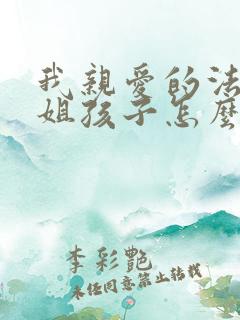 我親愛的法
姐孩子怎麼
李彩艷
未经同意禁止转载